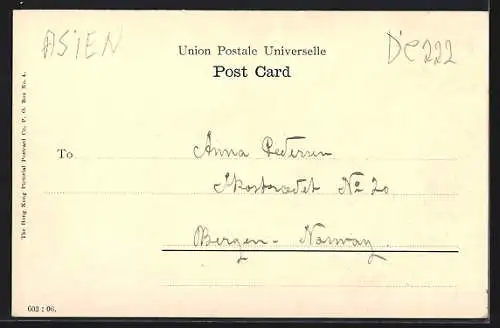 ASIEN
D'e222
Union Postale Universelle
Post Card
To Anna Pedersen
Skostrædet No 20
Bergen - Norway.
The Hong Kong Pictorial Postcard Co. P. O. Box No. 4.
602 : 06.